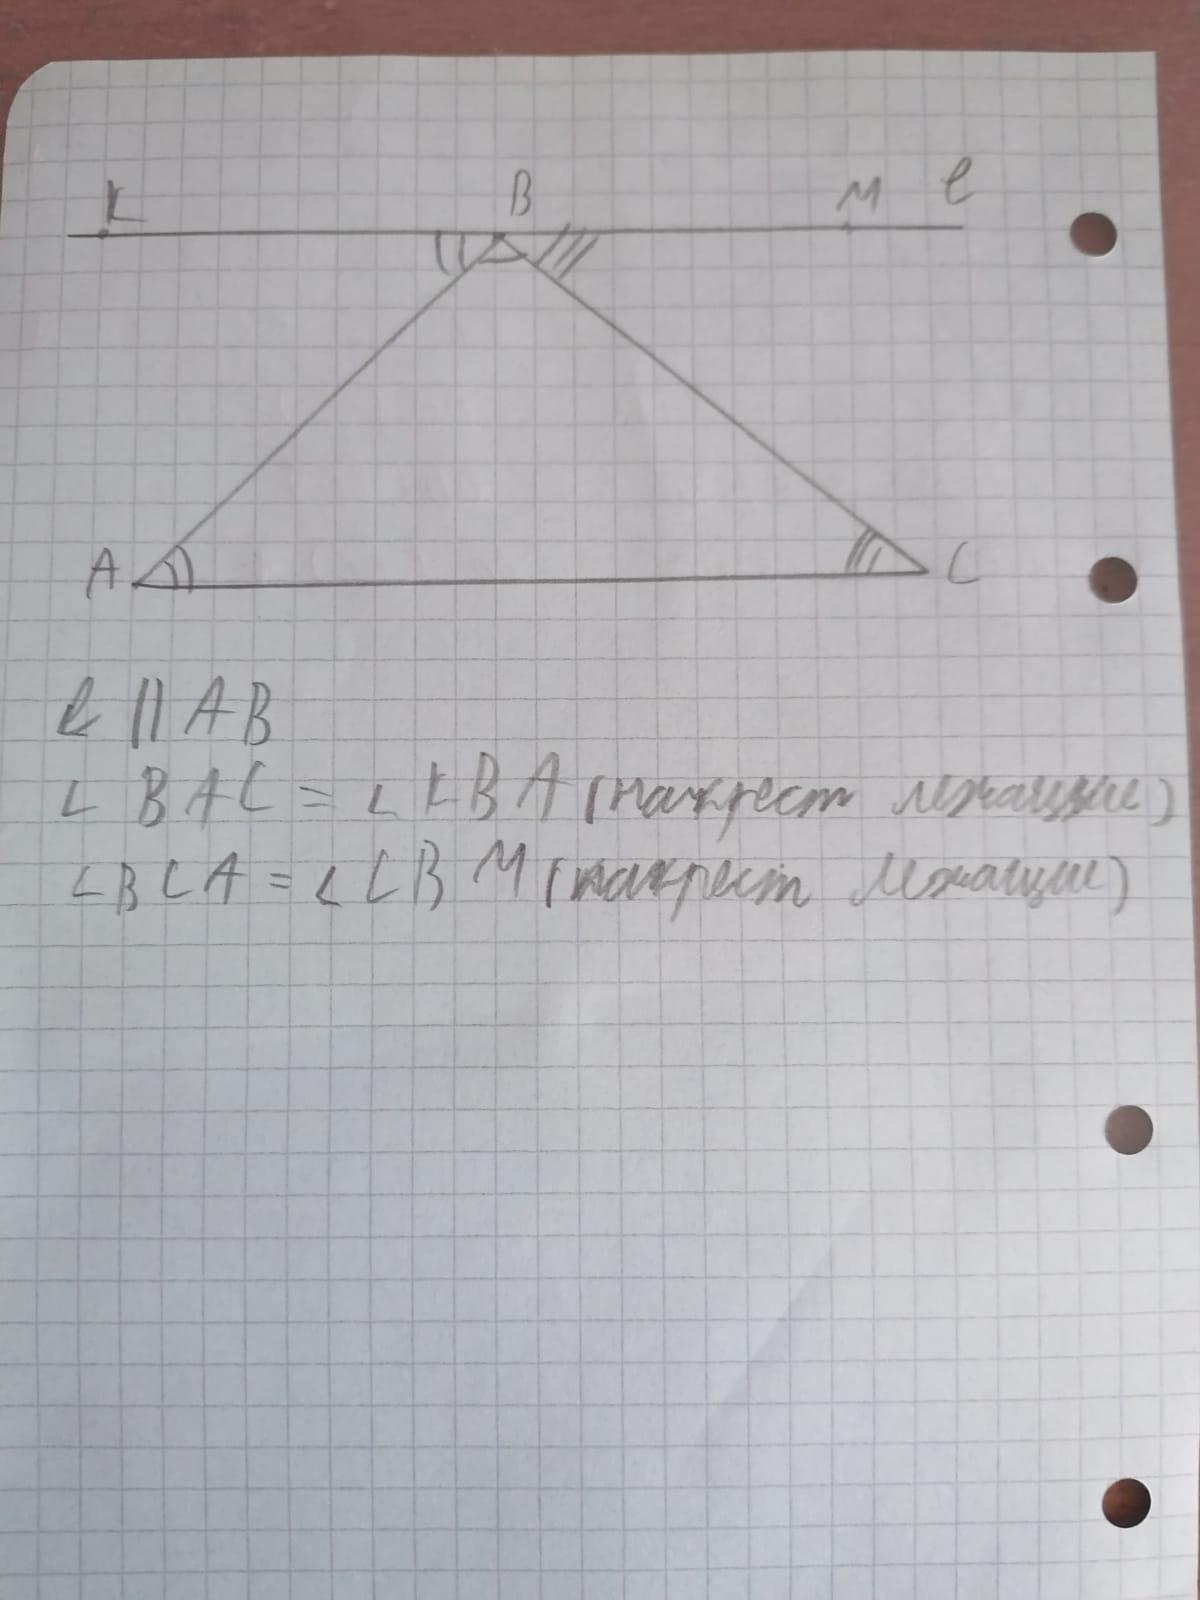 K B M ℓ
A C
ℓ || AB
∠ BAC = ∠ KBA (накрест лежащие)
∠BCA = ∠ CBM (накрест лежащие)